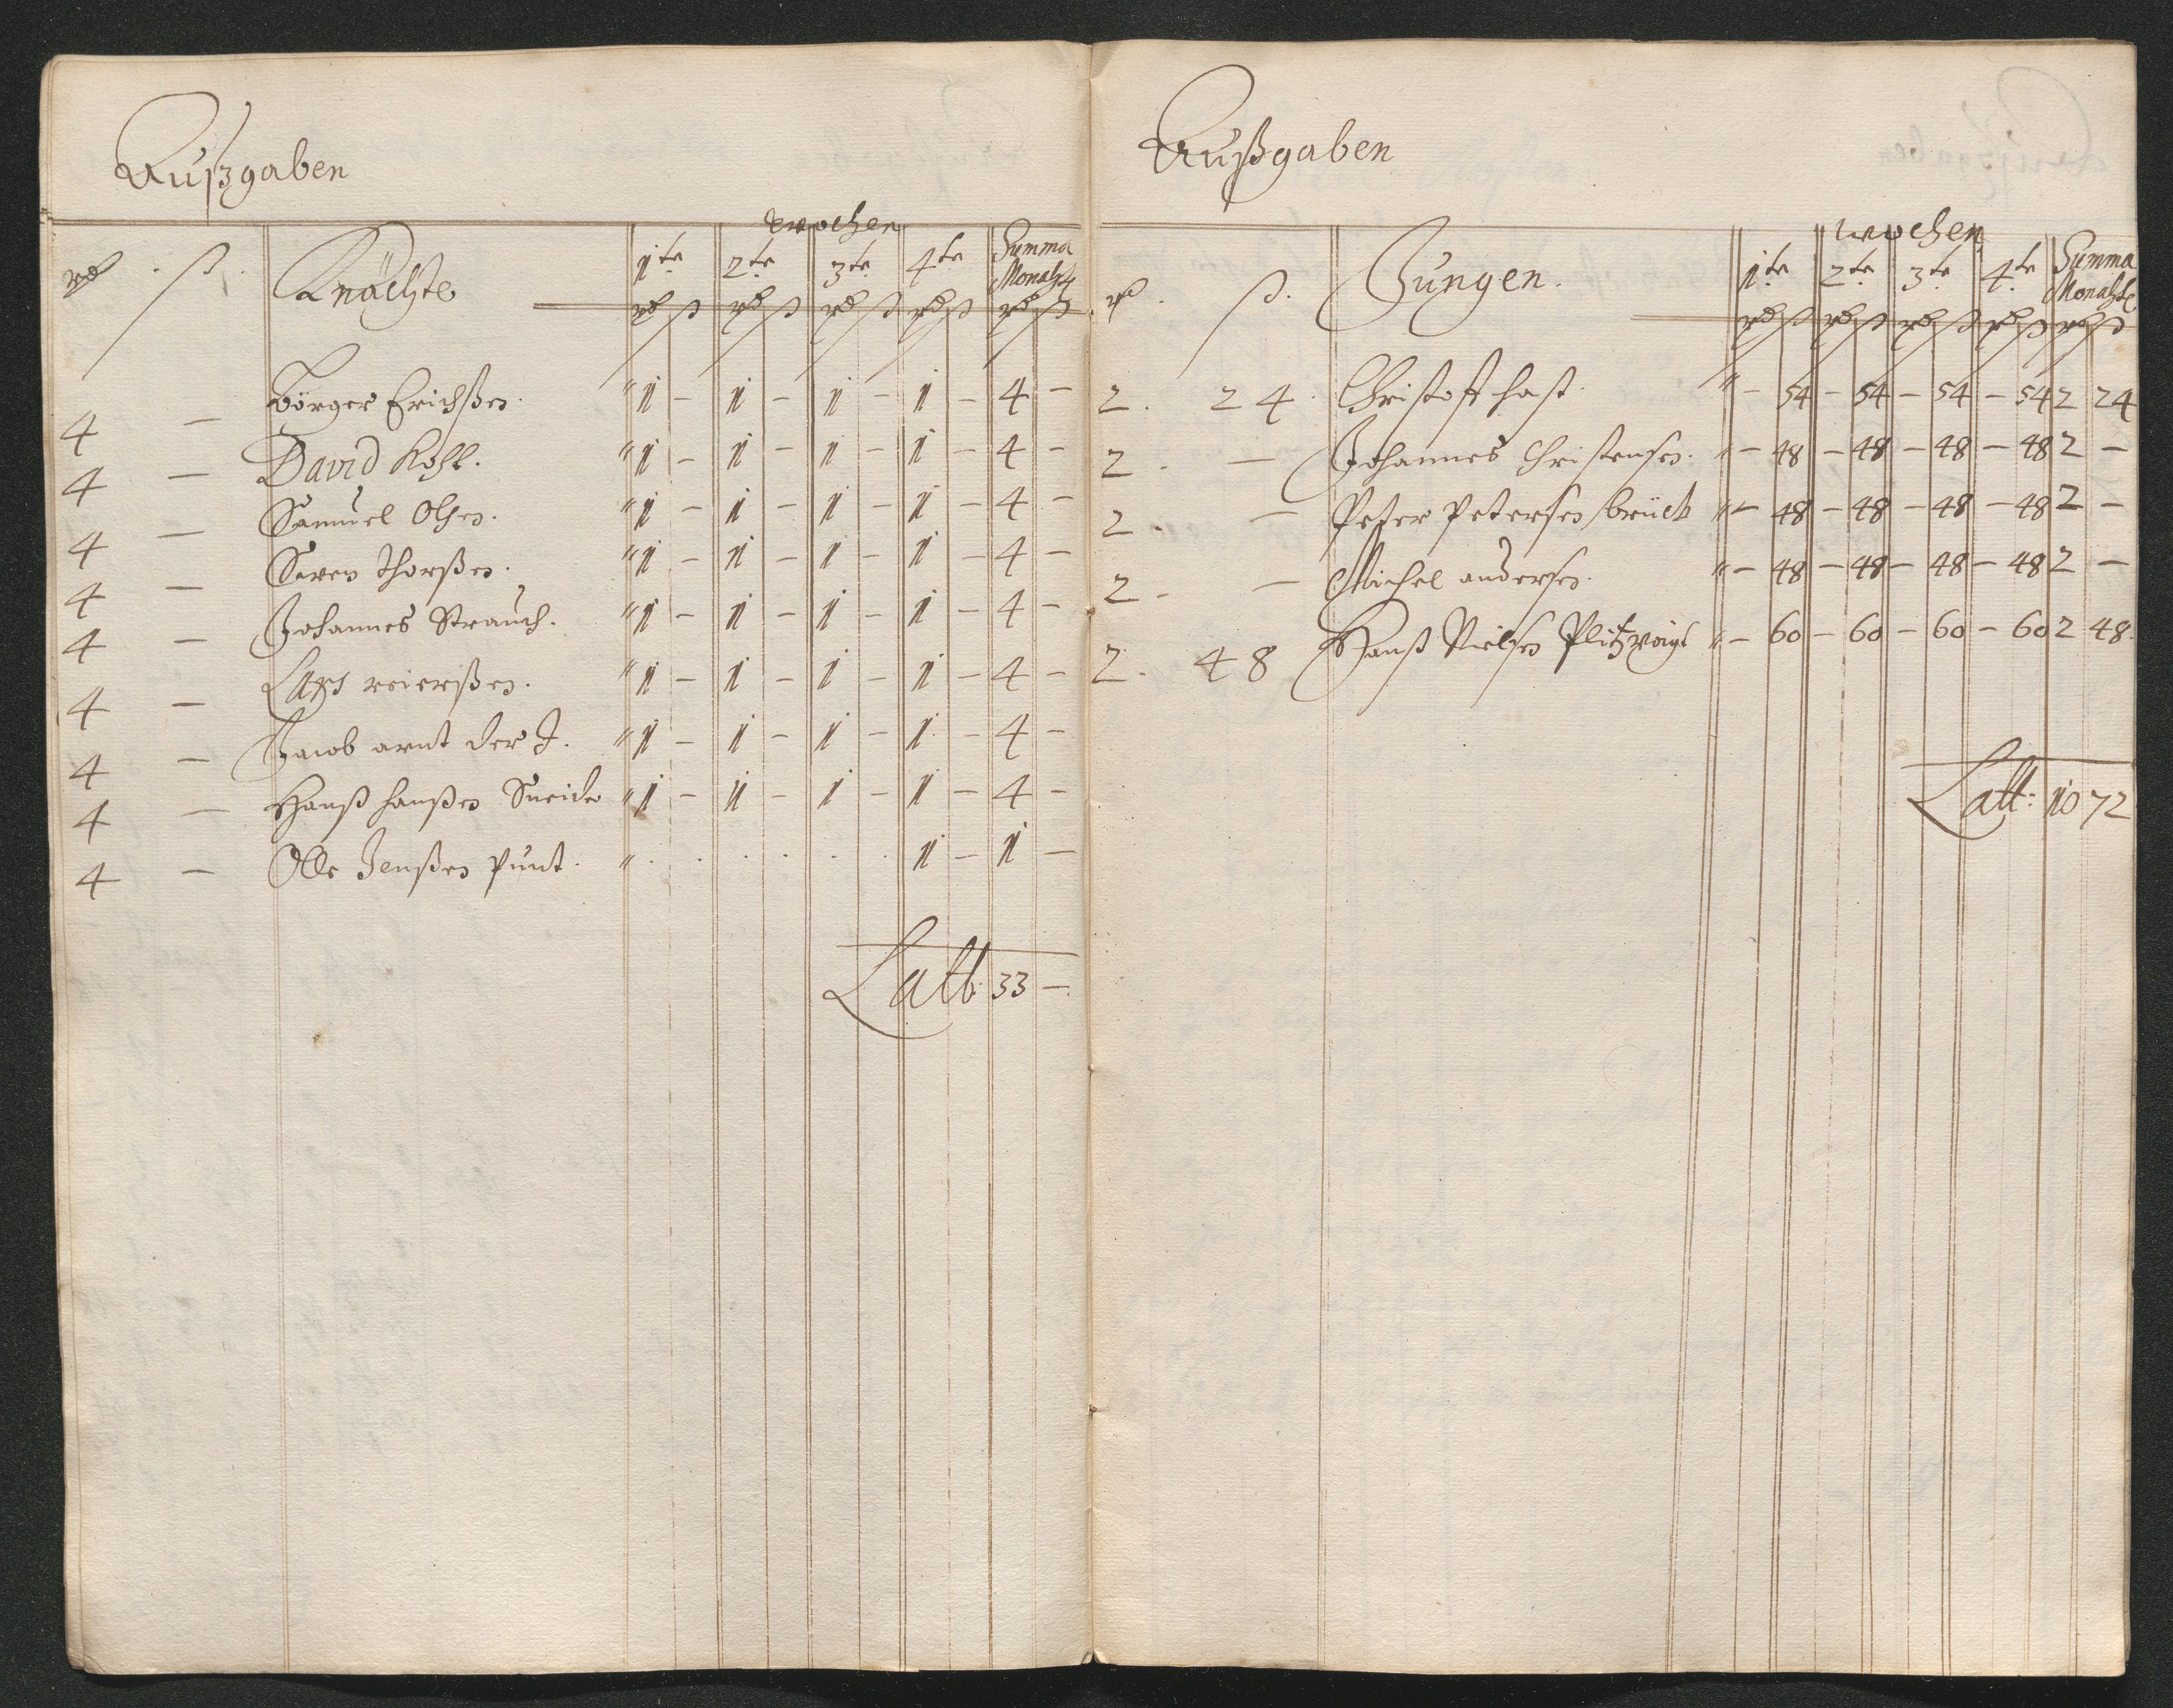 Außgaben
wochen
rd. ß. Knächte 1te 2te 3te 4te Summa Monahtl
rd ß rd ß rd ß rd ß rd ß
4 — Börger Erichßen. " 1 — 1 — 1 — 1 — 4 —
4 — David Kohl. " 1 — 1 — 1 — 1 — 4 —
4 — Samuel Olsen. " 1 — 1 — 1 — 1 — 4 —
4 — Seven Thorßen. " 1 — 1 — 1 — 1 — 4 —
4 — Johannes Strauch. " 1 — 1 — 1 — 1 — 4 —
4 — Lars reierßen. " 1 — 1 — 1 — 1 — 4 —
4 — Jacob arnt der J. " 1 — 1 — 1 — 1 — 4 —
4 — Hanß hanßen Sneider " 1 — 1 — 1 — 1 — 4 —
4 — Olle Jenßen Punt. " . . . . . . 1 — 1 —
Latt. 33 —
Außgaben
wochen
rd. ß. Jungen. 1te 2te 3te 4te Summa Monahtl
rd ß rd ß rd ß rd ß rd ß
2. 24. Christoff hast. " — 54 — 54 — 54 — 54 2 24
2. — Johannes Christensen. " — 48 — 48 — 48 — 48 2 —
2. — Peter Petersen brüch " — 48 — 48 — 48 — 48 2 —
2. — Michel andersen. " — 48 — 48 — 48 — 48 2 —
2. 48 Hanß Nielsen " — 60 — 60 — 60 — 60 2 48.
Latt: 10 72